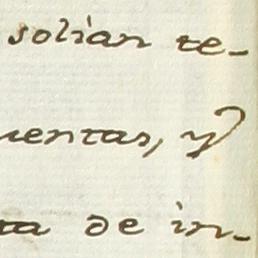 solian te-
mentas, y
ta de in-